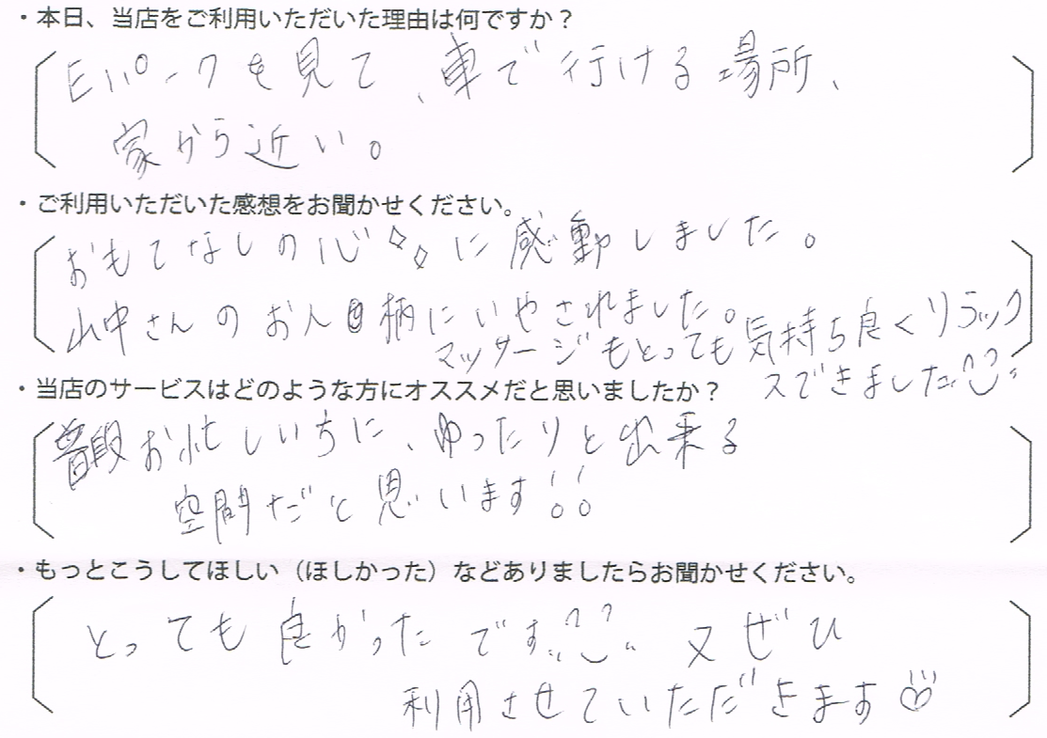 ・本日、当店をご利用いただいた理由は何ですか？
Eパークを見て、車で行ける場所、
家から近い。
・ご利用いただいた感想をお聞かせください。
おもてなしの心に感動しました。
山中さんのお人柄にいやされました。
マッサージもとっても気持ち良くリラック
スできました
・当店のサービスはどのような方にオススメだと思いましたか？
普段お忙しい方に、ゆったりと出来る
空間だと思います!!
・もっとこうしてほしい（ほしかった）などありましたらお聞かせください。
とっても良かったです 又ぜひ
利用させていただきます